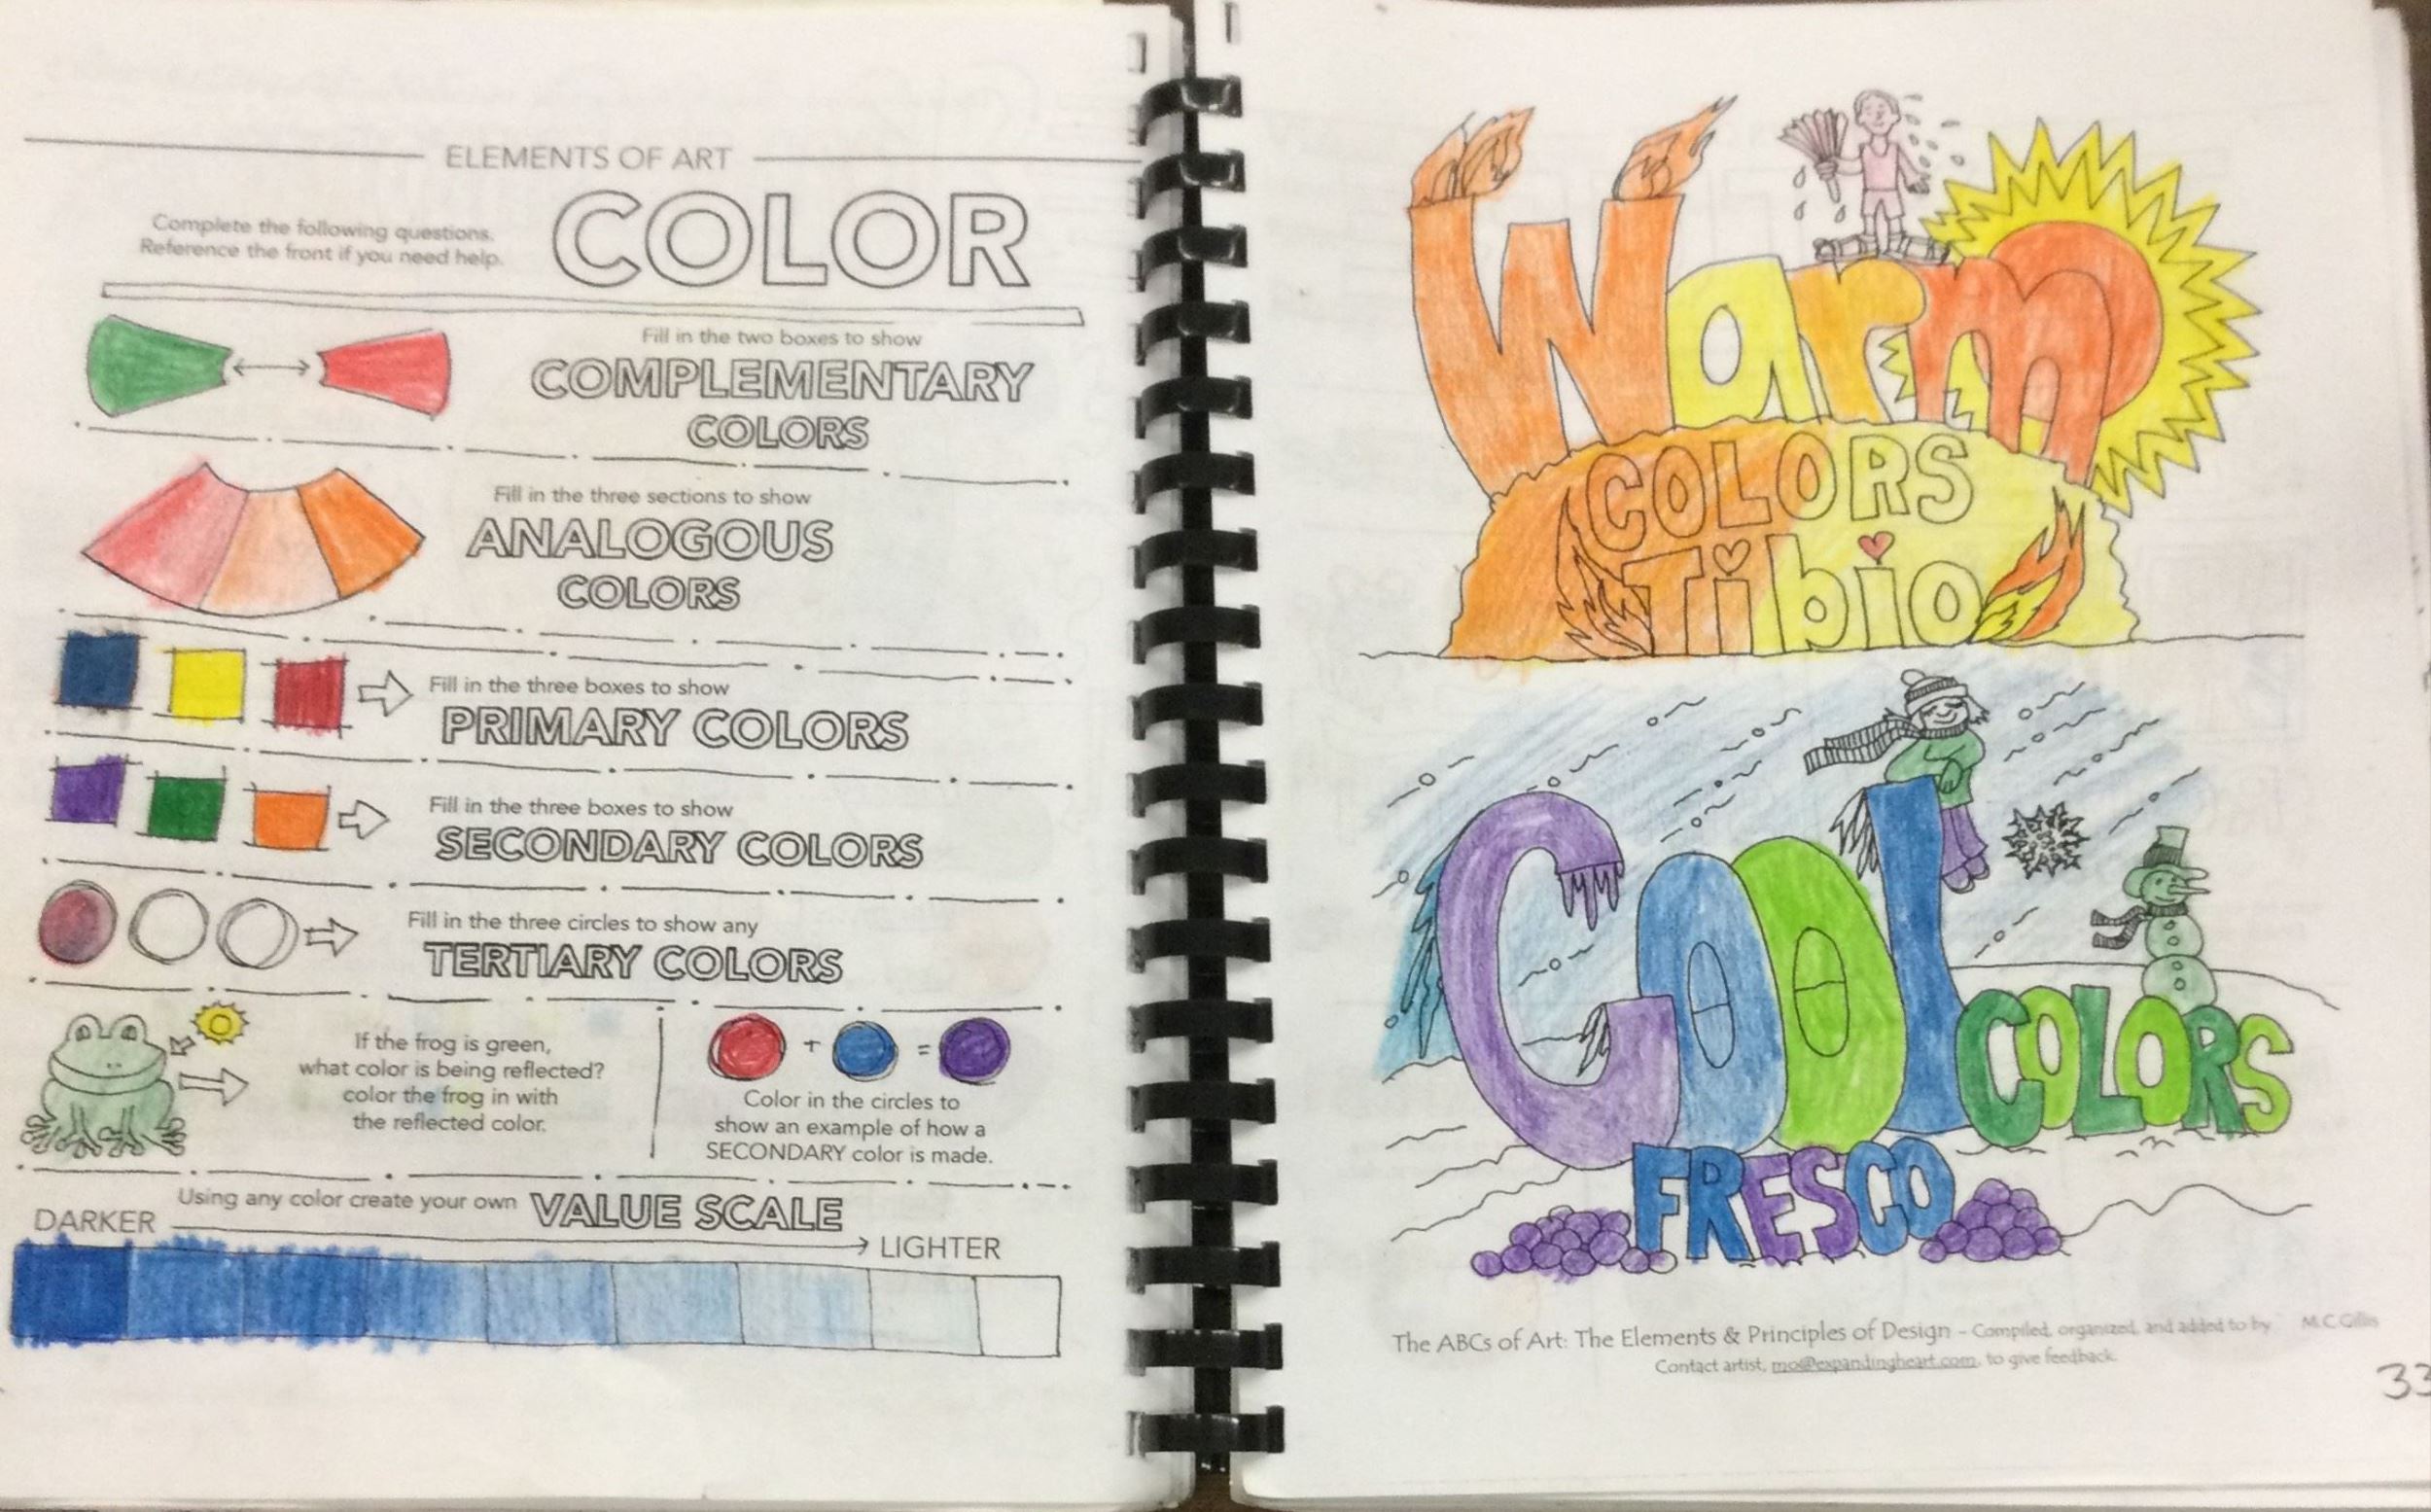 ELEMENTS OF ART
COLOR
Complete the following questions.
Reference the front if you need help.
Fill in the two boxes to show
COMPLEMENTARY
COLORS
Fill in the three sections to show
ANALOGOUS
COLORS
Fill in the three boxes to show
PRIMARY COLORS
Fill in the three boxes to show
SECONDARY COLORS
Fill in the three circles to show any
TERTIARY COLORS
If the frog is green,
what color is being reflected?
color the frog in with
the reflected color.
+ =
Color in the circles to
show an example of how a
SECONDARY color is made.
Using any color create your own VALUE SCALE
DARKER
LIGHTER
Warm
COLORS
Tibio
COOL
COLORS
FRESCO
The ABCs of Art: The Elements & Principles of Design - Compiled, organized, and added to by M.C.Gillis
Contact artist, mo@expandingheart.com, to give feedback.
33